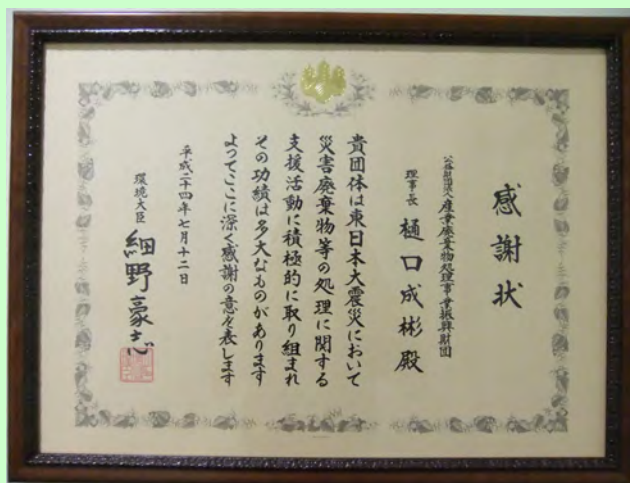 感謝状
公益財団法人産業廃棄物処理事業振興財団
理事長 樋口成彬殿
貴団体は東日本大震災において
災害廃棄物等の処理に関する
支援活動に積極的に取り組まれ
その功績は多大なものがあります
よってここに深く感謝の意を表します
平成二十四年七月十二日
環境大臣 細野豪志